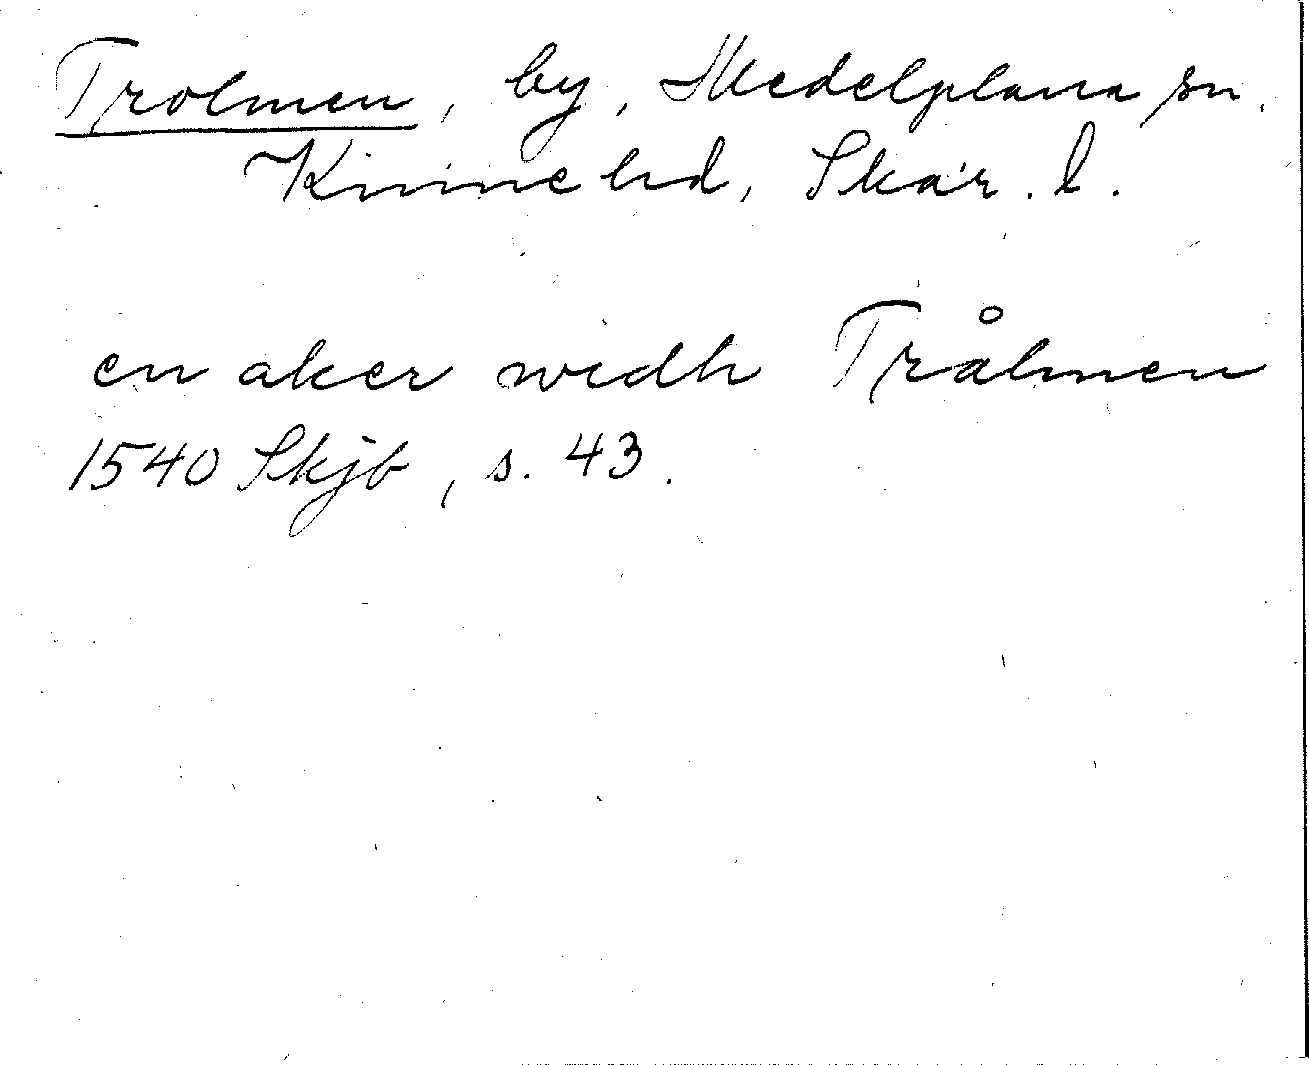 Trolmen, by, Medelplana sn.
Kinne hd, Skar. l.
en aker widh Trålmen
1540 Skjb, s. 43.